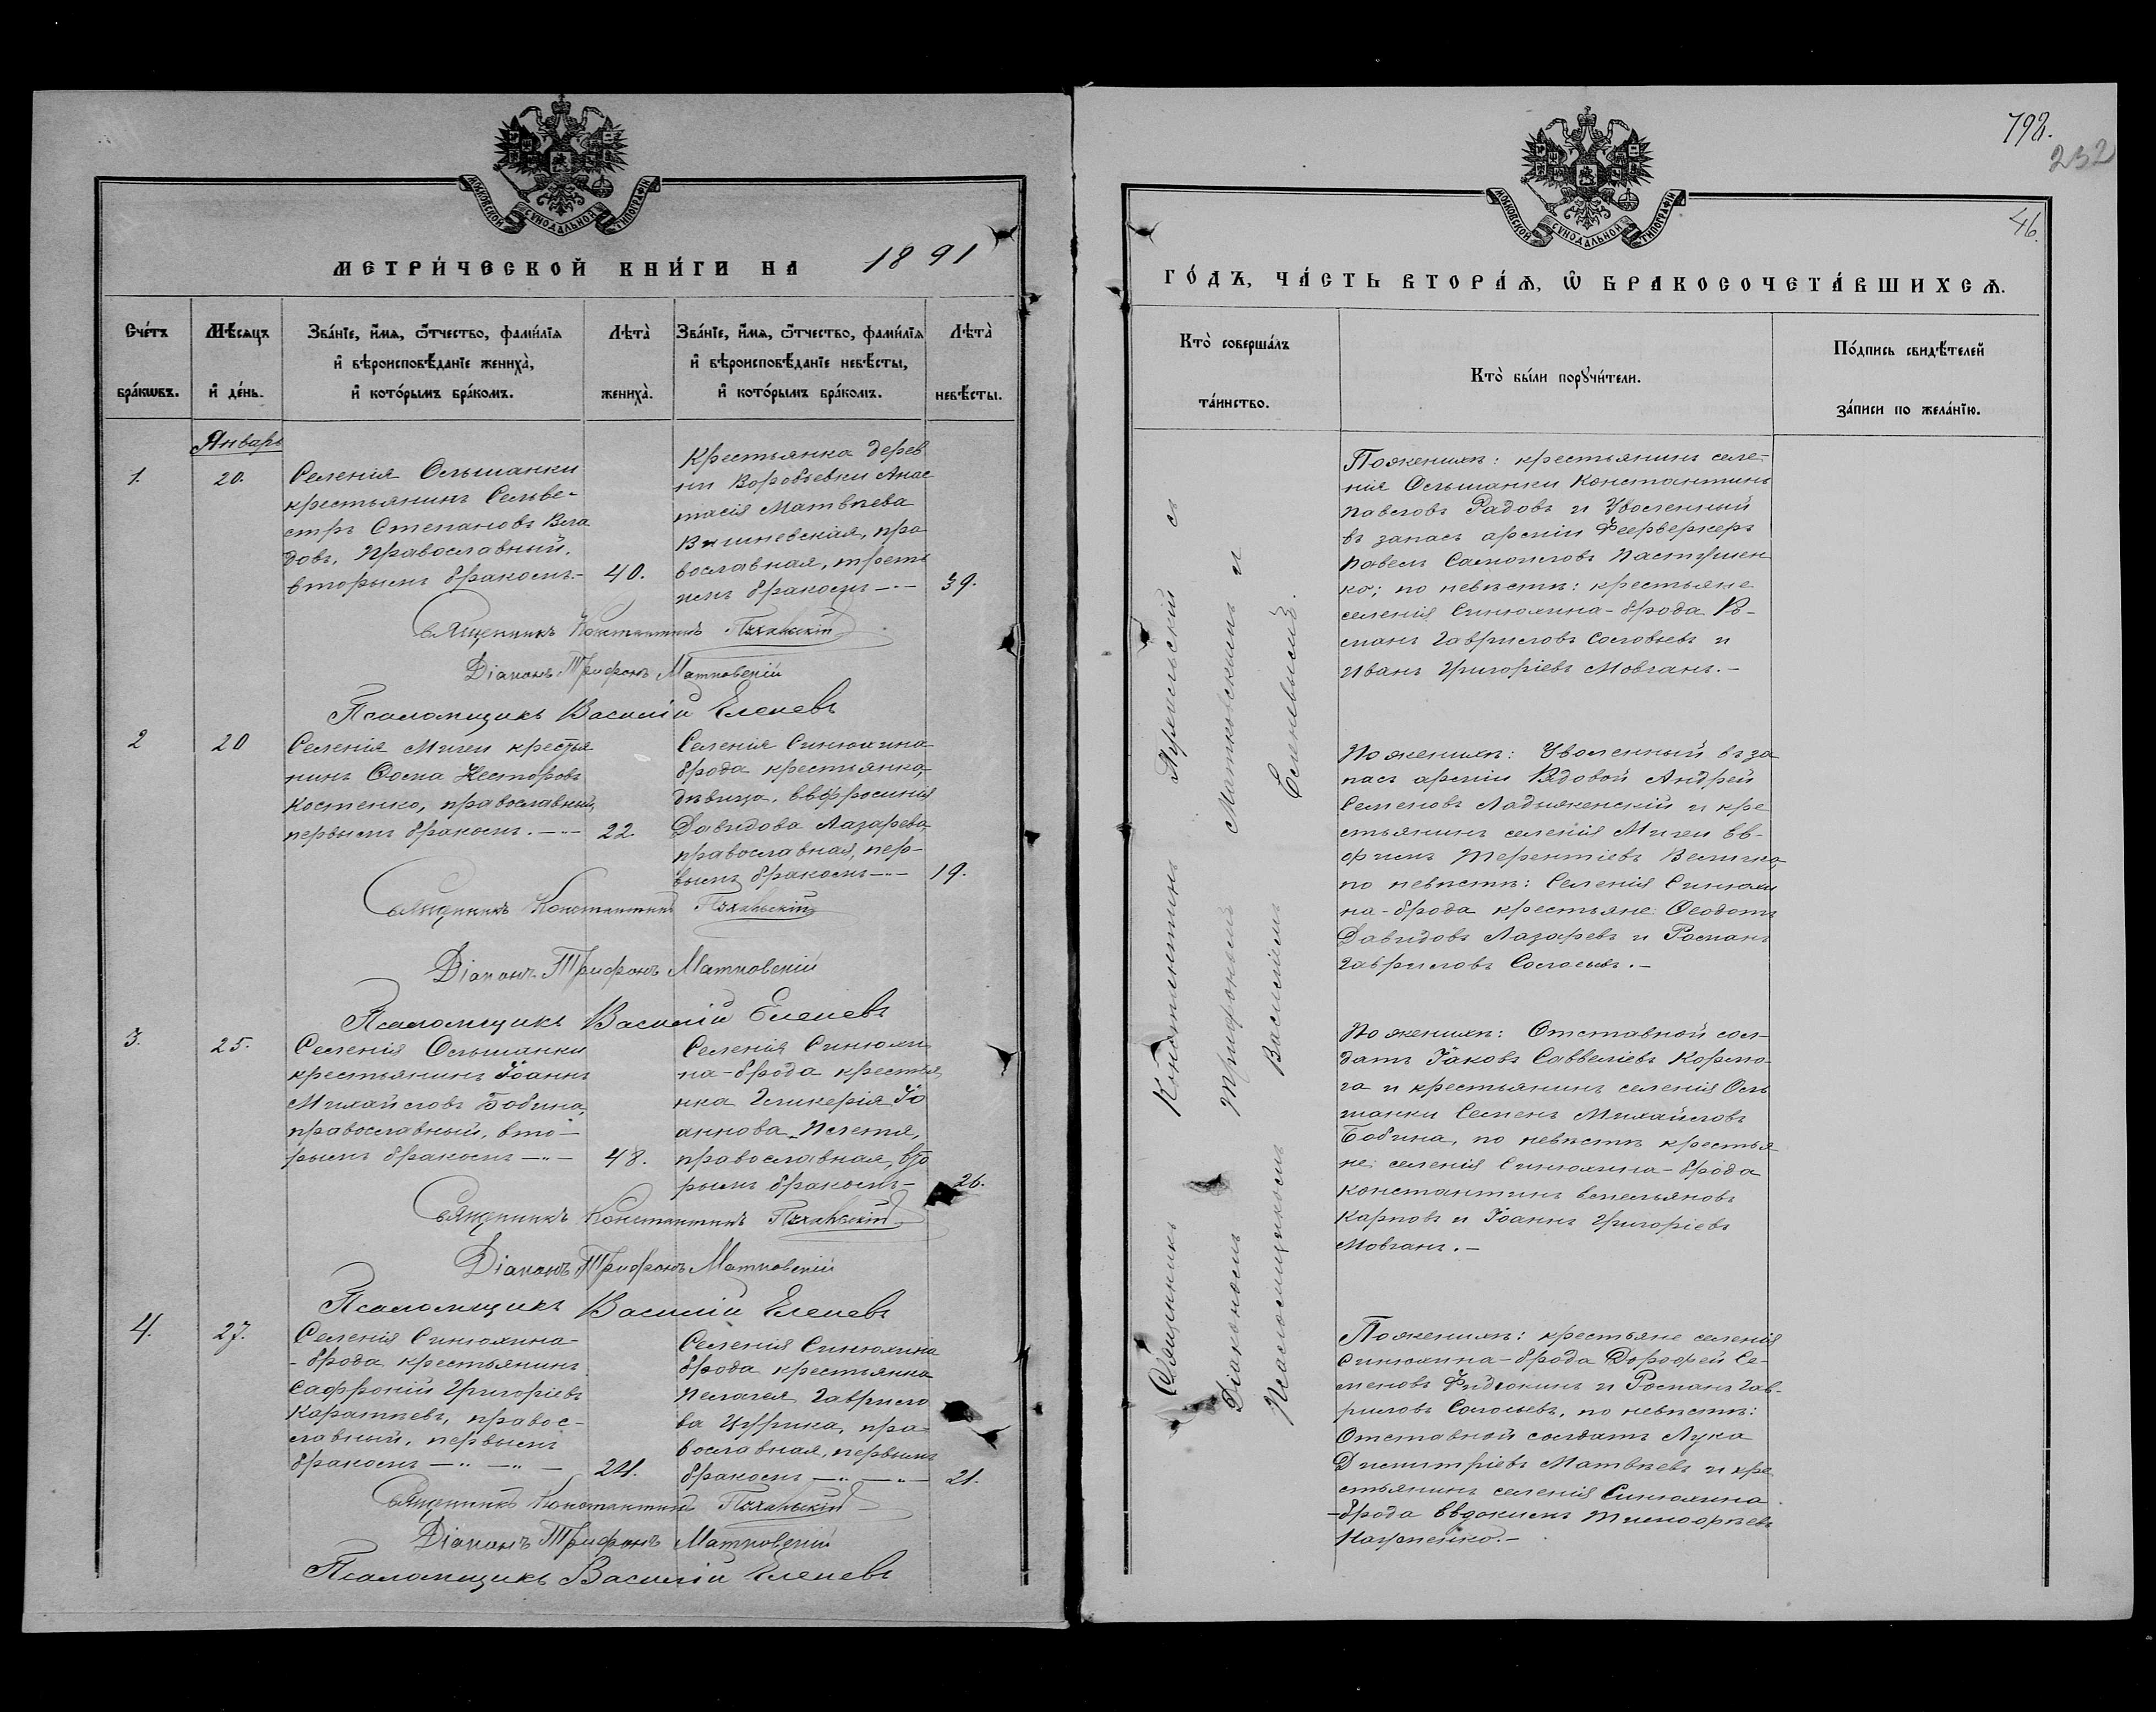 МОСКОВСКОЙ СѴНОДАЛЬНОЙ ТИПОГРАФІИ
МЕТРИ́ЧЕСКОЙ КНИ́ГИ НА 1891
Сче́тъ бра́кѡвъ.
Мѣ́сяцъ и҆ де́нь.
Зва́нїе, и҆́мѧ, ѻ҆́тчество, фами́лїѧ
и҆ вѣроисповѣ́данїе жениха̀,
и҆ кото́рымъ бра́комъ.
Лѣта̀ жениха̀.
Зва́нїе, и҆́мѧ, ѻ҆́тчество, фами́лїѧ
и҆ вѣроисповѣ́данїе невѣ́сты,
и҆ кото́рымъ бра́комъ.
Лѣта̀ невѣ́сты.
Январь
1.
20.
Селенія Ольшанки
крестьянинъ Сельве-
стръ Степановъ
довъ, православный.
вторымъ бракомъ.-
40.
Крестьянка дерев
ни Воробьевки Анас
тасія Матвѣева
Вишневская, пра
вославная, треть
имъ бракомъ -"-
39.
Священникъ Константинъ
Діаконъ Трифонъ Матковскій
Псаломщикъ Василій Еленевъ
2
20
Селенія Мигеи крестья
нинъ Ѳома Несторовъ
Костенко, православный,
первымъ бракомъ. -"-
22.
Селенія Синюхина
брода крестьянка,
дѣвица, Евфросинія
Давидова Лазарева
православная, пер-
вымъ бракомъ -"-
19.
Священникъ Константинъ
Діаконъ Трифонъ Матковскій
Псаломщикъ Василій Еленевъ
3.
25.
Селенія Ольшанки
крестьянинъ Іоаннъ
Михайловъ Бобина,
православный, вто-
рымъ бракомъ -"-
48.
Селенія Синюхи
на-брода крестья
нка Гликерія Іо
аннова
православная, вто
рымъ бракомъ-
26.
Священникъ Константинъ
Діаконъ Трифонъ Матковскій
Псаломщикъ Василій Еленевъ
4.
27.
Селенія Синюхина-
-брода крестьянинъ
Сафроній Григоріевъ
Каратѣевъ, правос-
славный, первымъ
бракомъ -"- -"-
24.
Селенія Синюхина
брода крестьянка
Пелагея Гаврило
ва Цурика, пра
вославная, первымъ
бракомъ -"- -"-
21.
Священникъ Константинъ
Діаконъ Трифонъ Матковскій
Псаломщикъ Василій Еленевъ
798.
232
46.
МОСКОВСКОЙ СѴНОДАЛЬНОЙ ТИПОГРАФІИ
ГО́ДЪ, ЧА́СТЬ ВТОРА́Ѧ, Ѽ БРАКОСОЧЕТА́ВШИХСѦ.
Кто̀ соверша́лъ
та́инство.
Кто̀ бы́ли порꙋчи́тели.
По́дпись свидѣ́телей
за́писи по жела́нїю.
Священникъ Константинъ съ
Діакономъ Трифономъ Матковскимъ и
Псаломщикомъ Василіемъ Еленевымъ.
По женихѣ: крестьянинъ селе-
нія Ольшанки Константинъ
Павловъ Радовъ и Уволенный
въ запасъ арміи Феерверкеръ
Павелъ Самойловъ Пастушен
ко; по невѣстѣ: крестьяне
селенія Синюхина-брода Ро-
манъ Гавриловъ Соловьевъ и
Иванъ Григоріевъ Мовчанъ.-
По женихѣ: Уволенный въ за
пасъ арміи Рядовой Андрей
Семеновъ Ладыженскій и кре
стьянинъ селенія Мигеи Ев-
фимъ Терентіевъ Величко,
по невѣстѣ: Селенія Синюхи
на-брода крестьяне: Ѳеодотъ
Давидовъ Лазаревъ и Романъ
Гавриловъ Соловьевъ.-
По женихѣ: Отставной сол-
датъ Іаковъ Савеліевъ
га и крестьянинъ селенія Оль
шанки Семенъ Михайловъ
Бобина, по невѣстѣ крестья
не: селенія Синюхина-брода
Константинъ Емельяновъ
Карповъ и Іоаннъ Григоріевъ
Мовчанъ.-
По женихѣ: крестьяне селенія
Синюхина-брода Дорофей Се-
меновъ Фидюкинъ и Романъ Гав-
риловъ Соловьевъ, по невѣстѣ:
Отставной солдатъ Лука
Димитріевъ Матвѣевъ и кре
стьянинъ селенія Синюхина
-брода Евдокимъ Тимофѣевъ